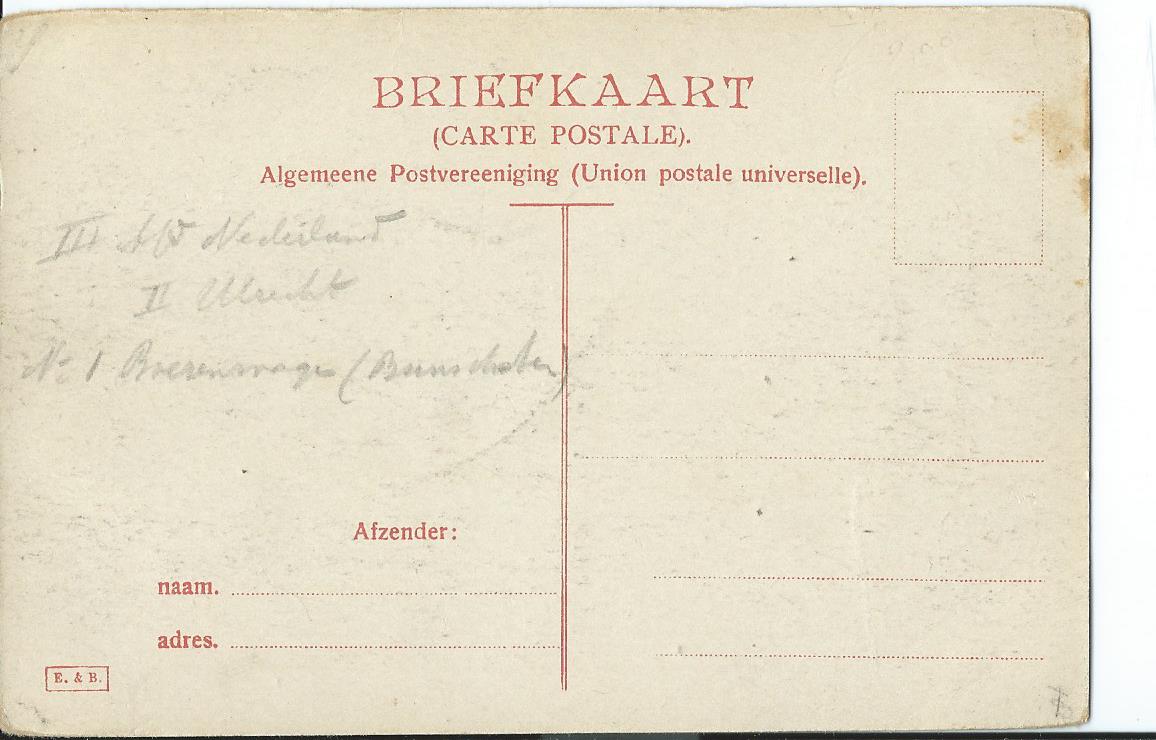 BRIEFKAART
(CARTE POSTALE).
Algemeene Postvereeniging (Union postale universelle).
III Afd Nederland
II Utrecht
No 1 Boerenwagen (Bunschoten)
Afzender:
naam.
adres.
E. & B.